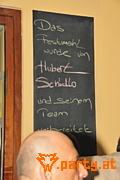 Das
Festmahl
wurde von
Hubert
und seinem
Team
vorbereitet
party.at